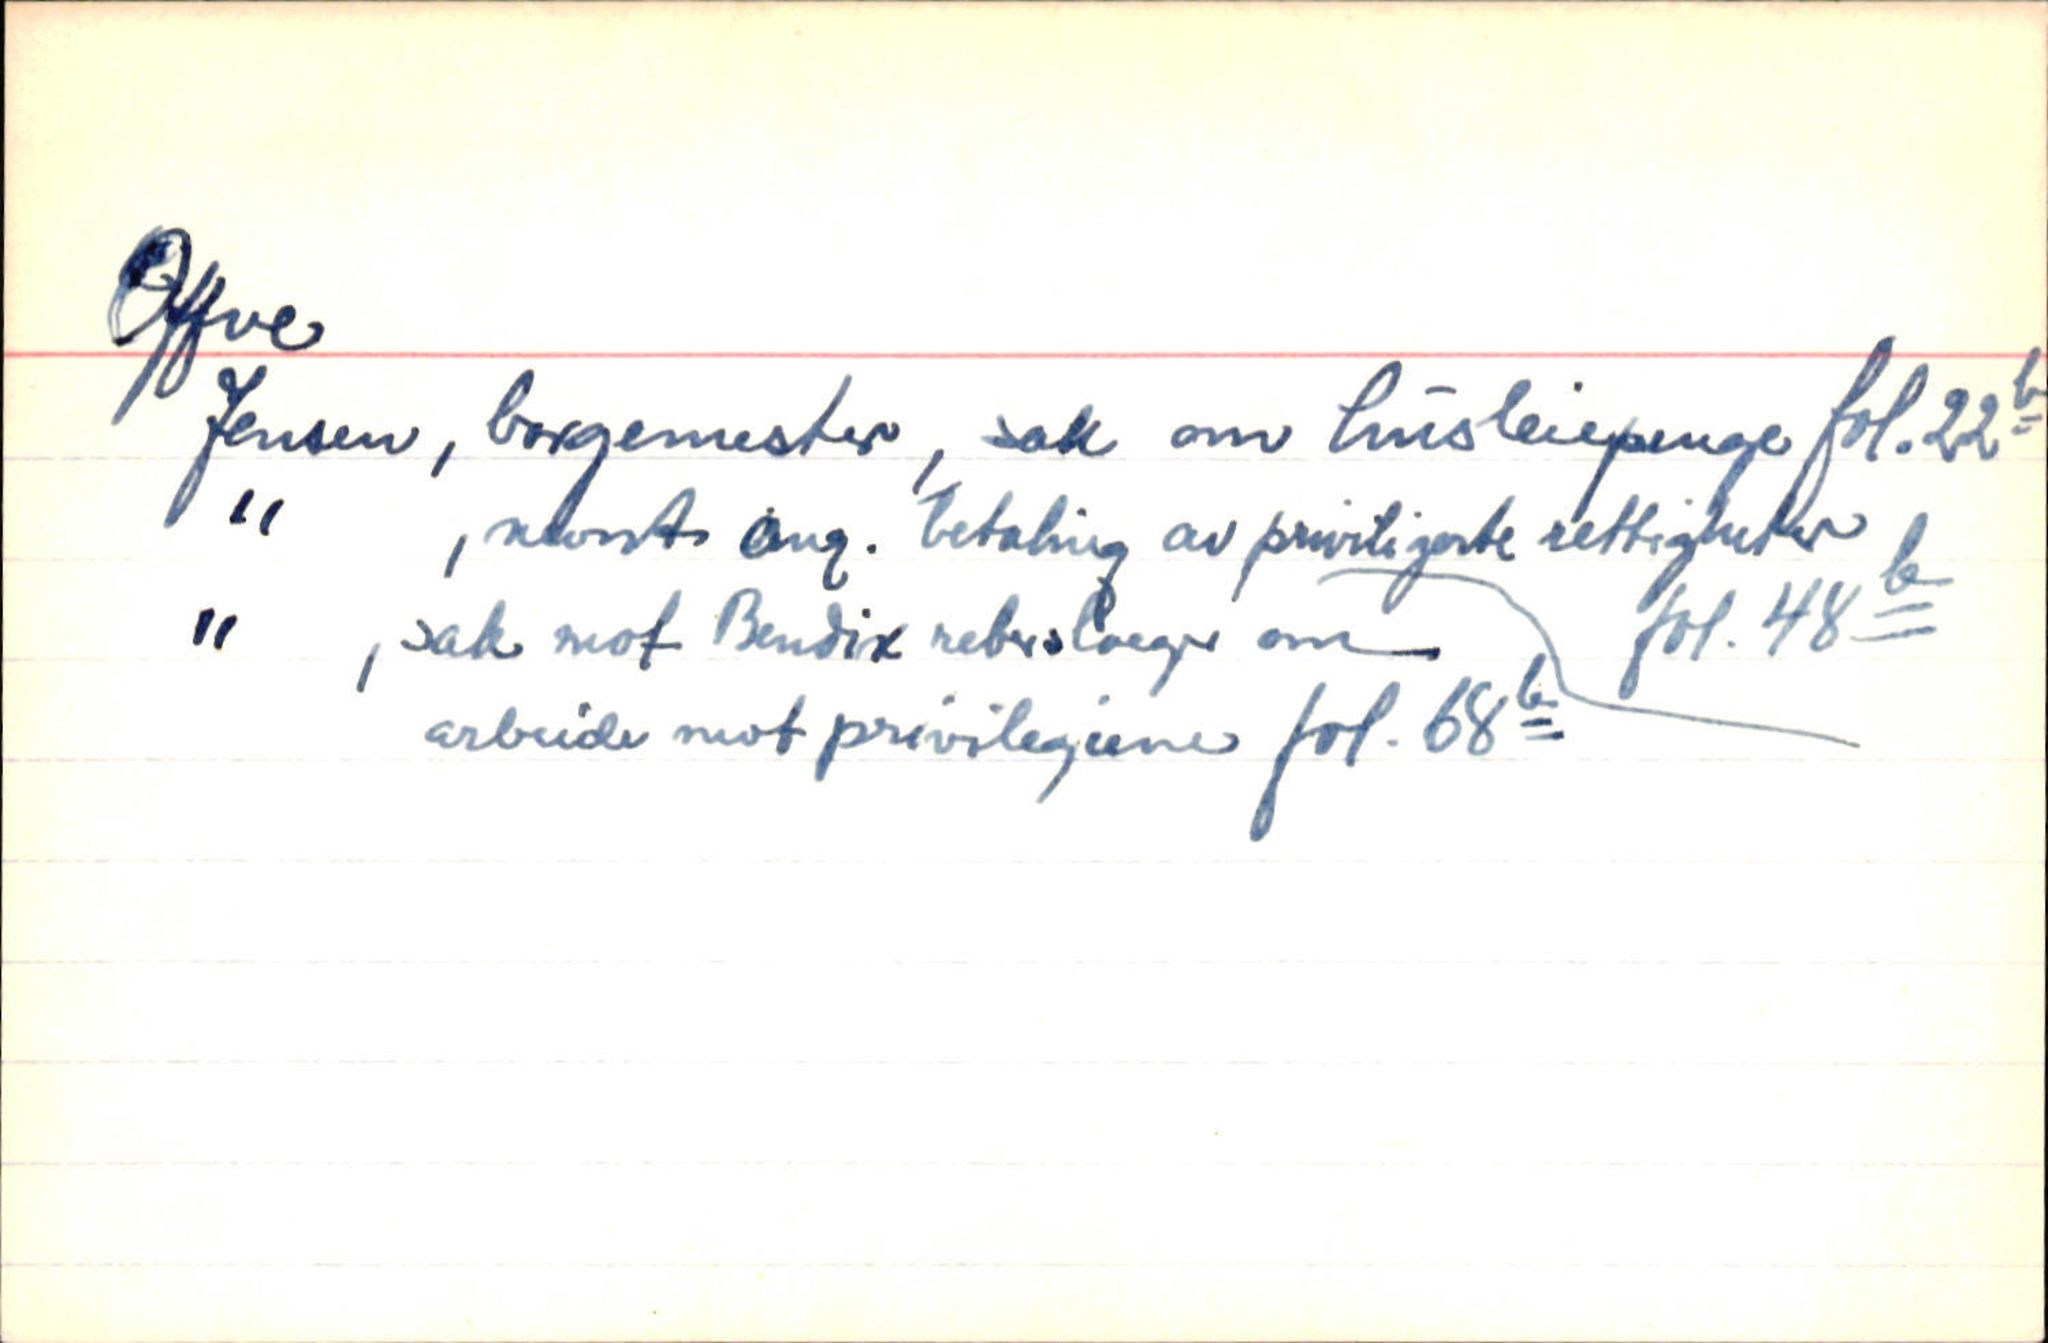 Offve
Jensen, borgemester, sak om húsleiepenge fol. 22b
" , nevnt ang. betaling av priviligerte rettigheter
fol. 48b
" , sak mot Bendix rebslaeger om
arbeide mot privilegiene fol. 68b